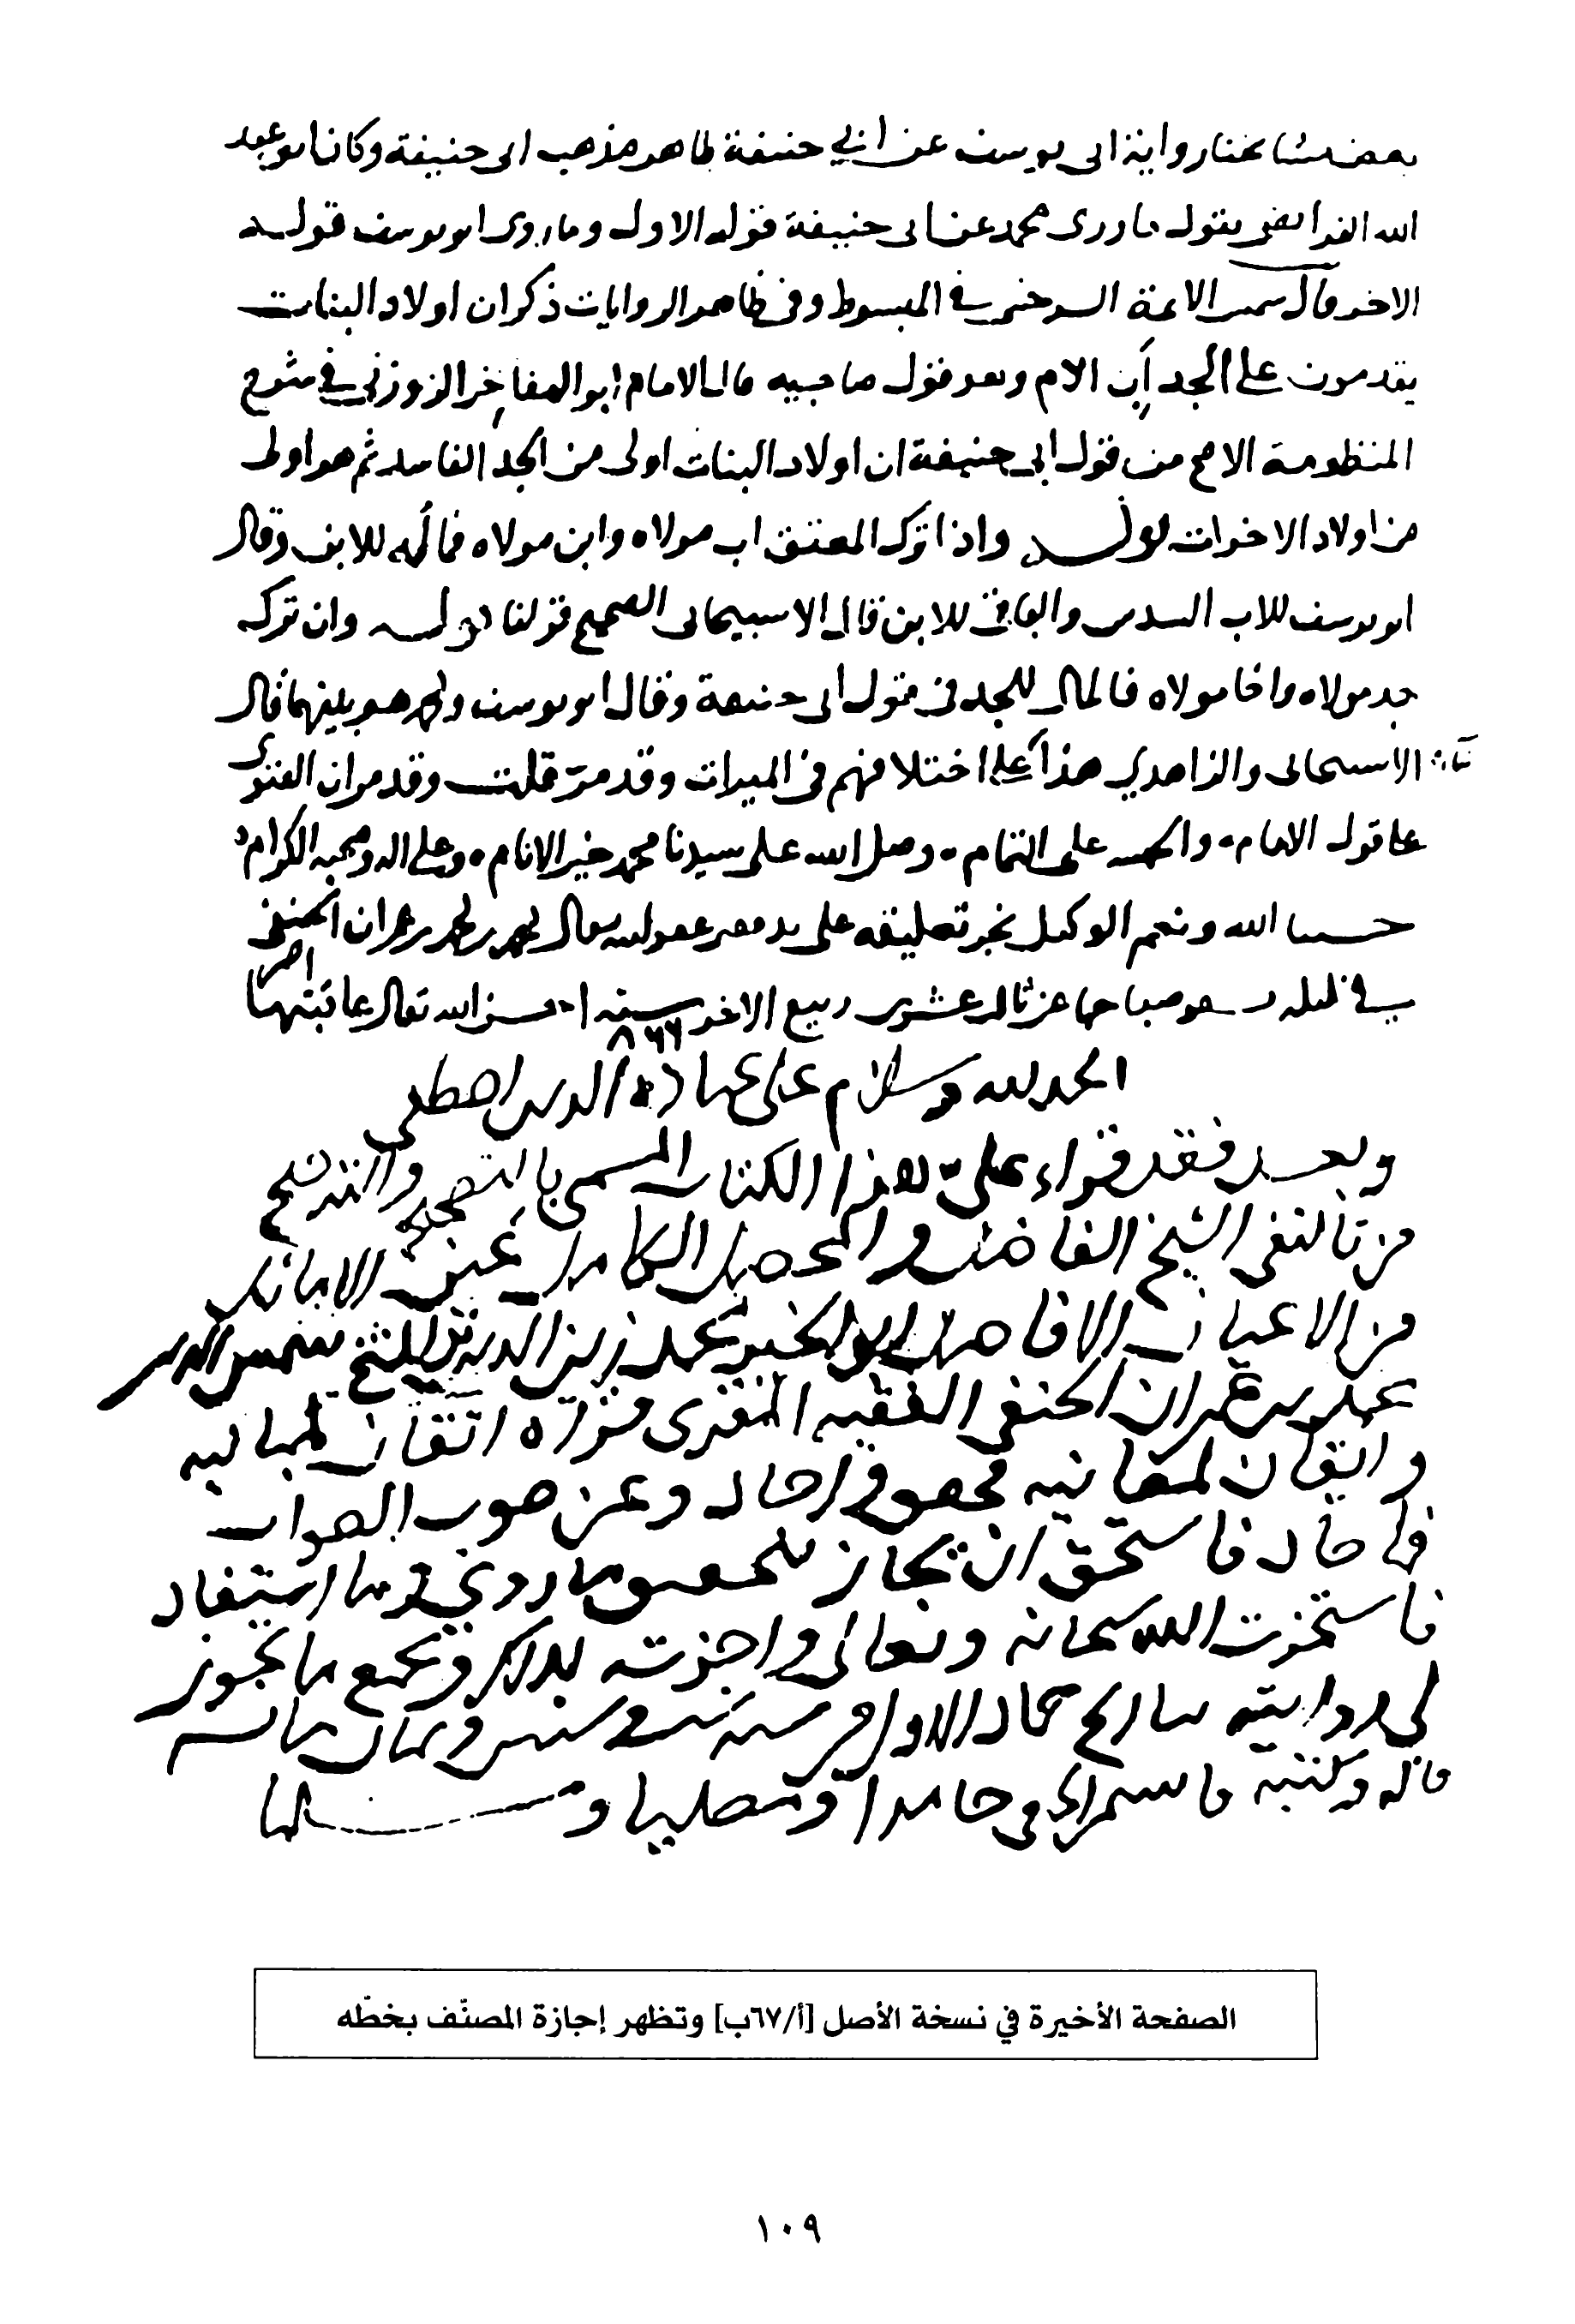 بعض مشايخنا رواية ابى يوسف عن ابي حنيفة ظاهر مذهب ابى حنيفة وكان ابو عبد
الله الفرائضى يقول ما روى محمد عن ابى حنيفة قوله الاول وما روى ابو يوسف قوله
الاخر قال شمس الايمة السرخسى في المبسوط وفى ظاهر الروايات ذكر ان اولاد البنات
يقدمون على الجد اب الام وهو قول صاحبيه قال الامام ابو المفاخر الزوزنى في شرح
المنظومة الاصح من قول ابى حنيفة ان اولاد البنات اولى من الجد الفاسد ثم هو اولى
من اولاد الاخوات قوله واذا ترك المعتق اب مولاه وابن مولاه فماله للابن وقال
ابو يوسف للاب السدس والباقى للابن قال الاسبيجابى الصحيح قولنا قوله وان ترك
جد مولاه واخا مولاه فالمال للجد فى قول ابى حنيفة وقال ابو يوسف ومحمد هو بينهما قال
الاسبيجابى والزاهدي هذا على اختلافهم فى الميراث وقد مر قلت وقد مر ان الفتوى
على قول الامام، والحمد لله على التمام، وصلى الله على سيدنا محمد خير الانام، وعلى اله وصحبه الكرام
حسبنا الله ونعم الوكيل نجز تعليقه على يد فقير عفو الله تعالى محمد بن محمد بن عمران الحنفى
في ليلة صباحها عن ثالث عشرى ربيع الاخر سنة ٨٦٦ احسن الله تعالى عاقبتها
الحمد لله وسلام على عباده الذين اصطفى
وبعد فقد قراء علىّ هذا الكتاب المسمى بالتصحيح والترجيح
من تاليفى الشيخ الفاضل والمحصل الكامل عين الاماثل
من الاعيان الافاضل ابو الخير محمد زين الدين بن الشيخ شمس الدين
محمد بن عمران الحنفى الفقيه المقرى قراة اتقان لمبانيه
وايقان لمعانيه فحقق واجاد وعن صوب الصواب
فما حاد فاستحق ان يجاز بما روى وما استفاد
فاستخرت الله سبحانه وتعالى واجزته بذلك وبجميع ما يجوز
لى روايته جماد الاول من سنة ست وستين وثمان مائة
قاله وكتبه قاسم الحنفى حامدا ومصليا ومسلما
الصفحة الأخيرة في نسخة الأصل [أ/٦٧ب] وتظهر إجازة المصنّف بخطّه
١٠٩